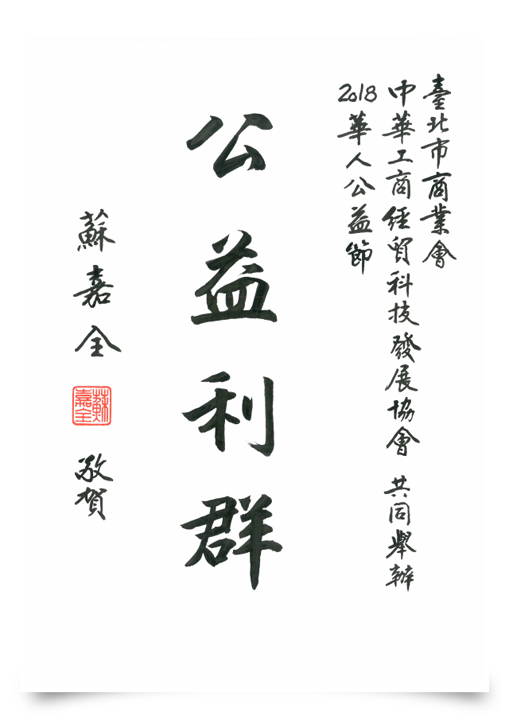 臺北市商業會
中華工商經貿科技發展協會 共同舉辦
2018華人公益節
公益利群
蘇嘉全
蘇嘉全
敬賀